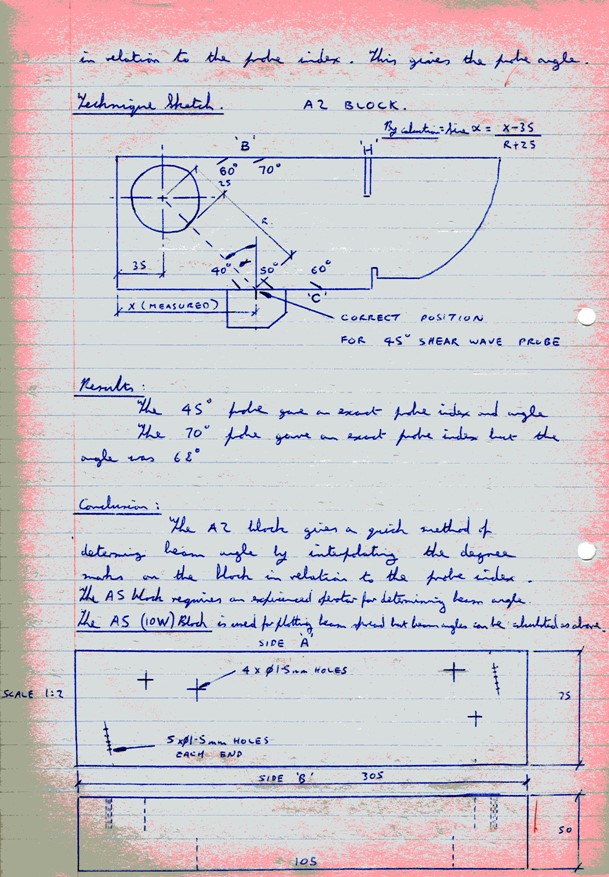 in relation to the probe index. This gives the probe angle.
Technique Sketch. A2 BLOCK.
By calculation = sine α = X-35
R+25
'B' 'H'
60° 70°
25
R
35
40° α 50° 60°
'C'
X (MEASURED)
CORRECT POSITION
FOR 45° SHEAR WAVE PROBE
Results:
The 45° probe gave an exact probe index and angle
The 70° probe gave an exact probe index but the
angle was 68°
Conclusion:
The A2 block gives a quick method of
determing beam angle by interpolating the degree
marks on the block in relation to the probe index.
The A5 block requires an experienced operator for determining beam angle.
The A5 (IOW) Block is used for plotting beam spread but beam angles can be calculated as above.
SIDE 'A'
4 x Ø1-5mm HOLES
SCALE 1:2
75
5 x Ø1-5mm HOLES
EACH END
SIDE 'B' 305
50
105